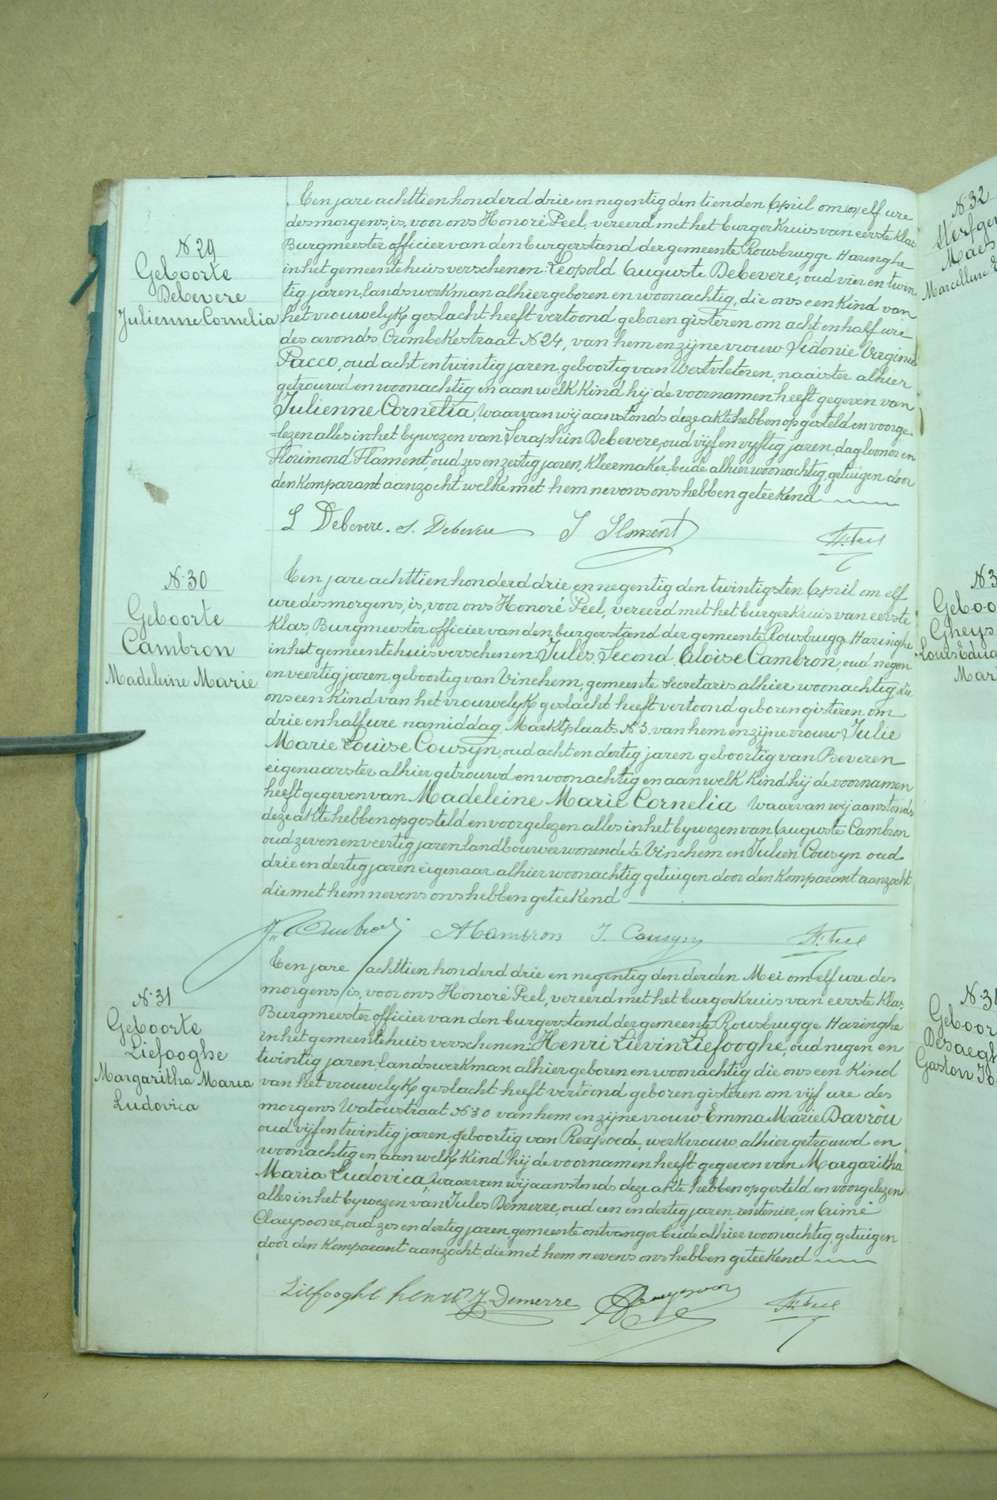 N. 29
Geboorte
Debevere
Julienne Cornelia
Een jare achttien honderd drie en negentig den tienden April om elf ure
des morgens, is, voor ons Honoré Peel, vereerd met het burgerkruis van eerste klas
Burgmeester officier van den burgerstand der gemeente Rousbrugge Haringhe
in het gemeentehuis verschenen Leopold Auguste Debevere, oud vier en twin
tig jaren, landswerkman alhier geboren en woonachtig, die ons een kind van
het vrouwelyk geslacht heeft vertoond geboren gisteren om acht en half ure
des avonds Crombekestraat N. 24, van hem en zijne vrouw Sidonie Virginie
Pacco, oud acht en twintig jaren, geboortig van Westvleteren, naaister alhier
getrouwd en woonachtig en aan welk kind hij de voornamen heeft gegeven van
Julienne Cornelia, waarvan wij aanstonds deze akte hebben opgesteld en voorge
lezen alles in het bywezen van Seraphin Debevere, oud vijf en vyftig jaren, daglooner en
Florimond Flament, oud zes en zestig jaren, Kleermaker, beide alhier woonachtig, getuigen door
den komparant aanzocht welke met hem nevens ons hebben geteekend
L Debevere. S. Debevere F Flament H. Peel
N. 30
Geboorte
Cambron
Madeleine Marie
Een jare achttien honderd drie en negentig den twintigsten April om elf
ure des morgens, is, voor ons Honoré Peel, vereerd met het burgerkruis van eerste
klas, Burgmeester officier van den burgerstand der gemeente Rousbrugg Haringhe
in het gemeentehuis verschenen Jules Second Aloïse Cambron, oud negen
en veertig jaren, geboortig van Vinchem, gemeente secretaris alhier woonachtig die
ons een kind van het vrouwelyk geslacht heeft vertoond geboren gisteren om
drie en half ure namiddag Marktplaats N. 3, van hem en zijne vrouw Julie
Marie Louise Cousyn, oud acht en dertig jaren geboortig van Beveren
eigenaarster alhier getrouwd en woonachtig en aan welk kind hij de voornamen
heeft gegeven van Madeleine Marie Cornelia waarvan wij aanstonds
deze akte hebben opgesteld en voorgelezen alles in het bywezen van Auguste Cambron
oud zeven en veertig jaren landbouwer wonende te Vinchem en Julien Cousyn oud
drie en dertig jaren eigenaar alhier woonachtig getuigen door den komparant aanzocht
die met hem nevens ons hebben geteekend
A Cambron J. Cousyn H. Peel
N. 31
Geboorte
Liefooghe
Margaritha Maria
Ludovica
Een jare achttien honderd drie en negentig den derden Mei om elf ure des
morgens, is, voor ons Honoré Peel, vereerd met het burgerkruis van eerste klas
Burgmeester officier van den burgerstand der gemeente Rousbrugge Haringhe
in het gemeentehuis verschenen Henri Livin Liefooghe, oud negen en
twintig jaren, landswerkman alhier geboren en woonachtig die ons een kind
van het vrouwelyk geslacht heeft vertoond geboren gisteren om vijf ure des
morgens Watoustraat N. 30 van hem en zijne vrouw Emma Marie Davrou
oud vijf en twintig jaren, geboortig van Rexpoede, werkvrouw alhier getrouwd en
woonachtig en aan welk kind hij de voornamen heeft gegeven van Margaritha
Maria Ludovica, waarvan wij aanstonds deze akte hebben opgesteld en voorgelezen
alles in het bywezen van Jules Demerre, oud een en dertig jaren, rentenier, en Crimé
Claeysoone, oud zes en dertig jaren gemeente ontvanger beide alhier woonachtig, getuigen
door den komparant aanzocht, die met hem nevens ons hebben geteekend
Liefooghe henri J. Demerre H. Peel
N. 32